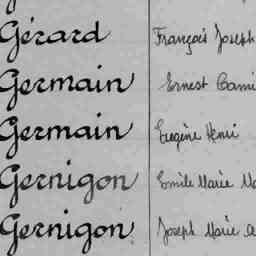 Gérard François Joseph
Germain Ernest Cami
Germain Eugène Henri
Gernigon Emile Marie Ma
Gernigon Joseph Marie A